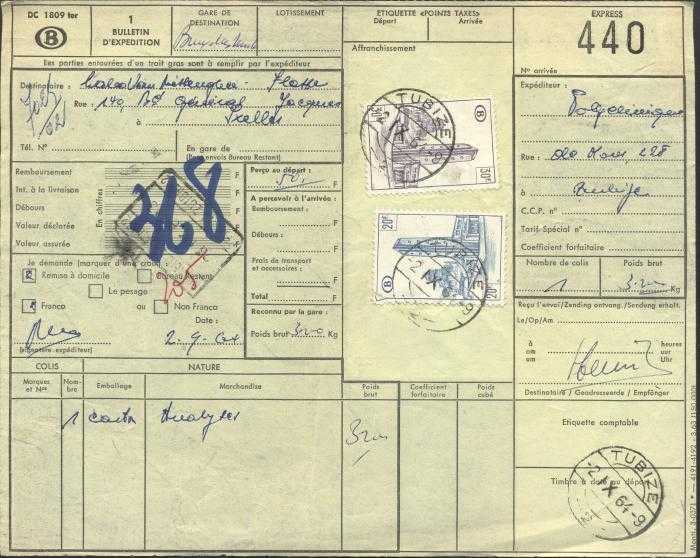 DC 1809 ter
B
1
BULLETIN
D'EXPEDITION
GARE DE
DESTINATION
LOTISSEMENT
ETIQUETTE «POINTS TAXES»
Départ / Arrivée
EXPRESS
440
Nº arrivée
Les parties entourées d'un trait gras sont à remplir par l'expéditeur
Destinataire :
Rue : 140, Bd Général Jacques
à Ixelles
Tél. Nº
En gare de
(Pour envois Bureau Restant)
Affranchissement
B
30F
30F
TUBIZE
20F
20F
B
TUBIZE
Expéditeur :
Rue :
à Tubize
C.C.P. nº
Tarif Spécial nº
Coefficient forfaitaire
Nombre de colis
Poids brut
1
Remboursement
Int. à la livraison
Débours
Valeur déclarée
Valeur assurée
En chiffres
F
F
F
F
F
368
Perçu au départ :
50,- F
A percevoir à l'arrivée :
Remboursement :
F
Débours :
F
Frais de transport
et accessoires :
F
Total F
Reconnu par la gare :
Poids brut: Kg
Je demande (marquer d'une croix) :
Remise à domicile
Bureau Restant
Le pesage
Franco
ou
Non Franco
Date :
2-9-64
(signature expéditeur)
Reçu l'envoi/Zending ontvang./Sendung erhalt.
Le/Op/Am
à
om
um
heures
uur
Uhr
Destinataire / Geadresseerde / Empfänger
COLIS
NATURE
Marques
et Nºs
Nom-
bre
Emballage
Marchandise
Poids
brut
Coefficient
forfaitaire
Poids
cubé
1 carton
Etiquette comptable
Timbre à date au départ
TUBIZE
-2 IX 64-9